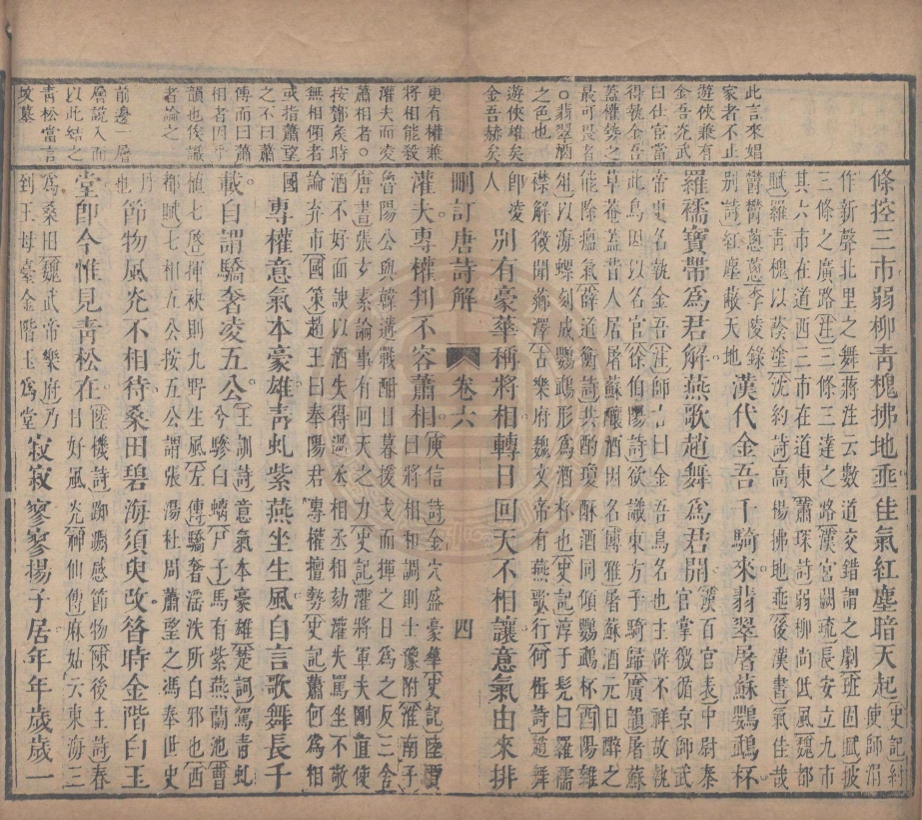 此言來娼
家者不止
遊俠兼有
金吾充武
曰仕宦當
得執金吾
蓋權勢之
最可畏者
○翡翠酒
之色也
遊俠雄矣
金吾赫矣
更有權兼
將相能殺
灌夫而凌
蕭相者○
按鄭矣時
無相傾者
或指蕭望
之不曰蕭
傅而曰蕭
相者因乎
韻也俟識
者論之
前邊一層
層說入而
以此結之
青松當言
墳墓
條控三市弱柳青槐拂地垂佳氣紅塵暗天起史記紂使師涓
作新聲北里之舞蔣注云數道交錯謂之劇班固賦披
三條之廣路注三市三達之路漢宮闕疏長安立九市
其六市在道西三市在道東蕭琛詩弱柳尚低風魏都
賦羅青槐以蔭塗沈約詩高楊拂地垂後漢書氣佳哉
鬱鬱蔥蔥李陵錄
別詩紅塵蔽天地
漢代金吾千騎來翡翠屠蘇鸚鵡杯
羅襦寶帶為君解燕歌趙舞為君開漢百官表中尉秦
官掌徼循京師武
帝更名執金吾注師古曰金吾鳥名也主辟不祥故執
此鳥因以名官徐伯陽詩欲識東方千騎歸廣韻屠蘇
草菴蓋昔人居屠蘇釀酒因名博雅屠蘇酒元日醉之
能除瘟氣薛道衡詩共酌瓊酥酒同傾鸚鵡杯酉陽雜
俎以海螺刻成鸚鵡形為酒杯也史記淳于髡曰羅襦
襟解微聞薌澤古樂府魏文帝有燕歌行何楫詩請舞
即凌
人
別有豪華稱將相轉日回天不相讓意氣由來排
刪訂唐詩解
卷六
四
灌夫專權判不容蕭相庾信詩金穴盛豪華史記陸賈
曰將相和調則士豫附淮南子
魯陽公與韓遘戰酣日暮援戈而揮之日為之反三舍
唐書張玄素論事有回天之力史記灌將軍夫剛直使
酒不好面諛以酒失得過丞相丞相劾灌失罵坐不敬
論弃市國策趙王曰奉陽君專權擅勢史記蕭何為相
國
專權意氣本豪雄青虬紫燕坐生風自言歌舞長千
載自謂驕奢凌五公王訓詩意氣本豪雄楚詞駕青虬
兮驂白螭尸子馬有紫燕蘭池曹
植七啟揮袂則九野生風左傳驕奢淫泆所自邪也西
都賦七相五公按五公謂張湯杜周蕭望之馮奉世史
丹
也
節物風光不相待桑田碧海須臾改昔時金階白玉
堂即今惟見青松在陸機詩踟躕感節物陳後主詩春
日好風光神仙傳麻姑云東海三
為桑田魏武帝樂府乃
到王母臺金階玉為堂
寂寂寥寥揚子居年年歲歲一